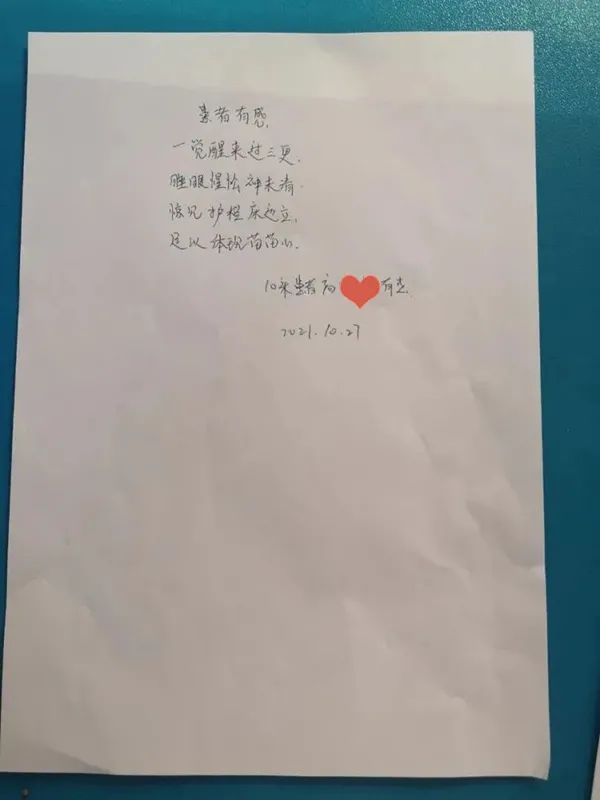 患者有感
一觉醒来过三更.
睡眼惺忪神未清.
惊见护栏床边立.
足以体现茁茁心.
10床患者高 有感.
2021.10.27